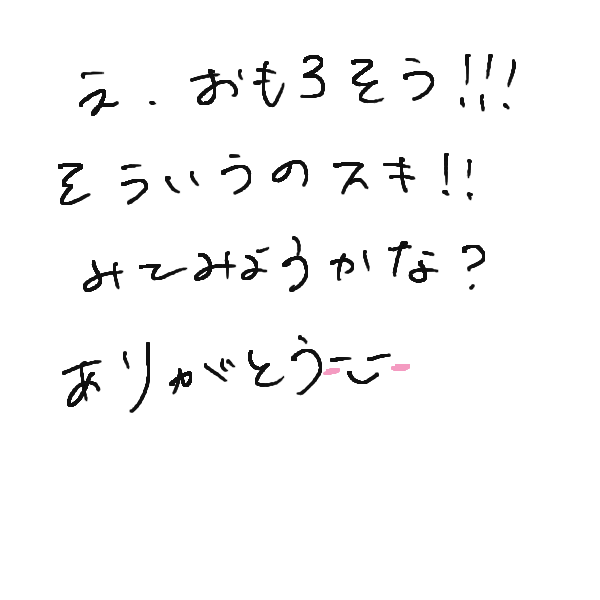 え.おもろそう!!!
そういうのスキ!!
みてみようかな?
ありがとう